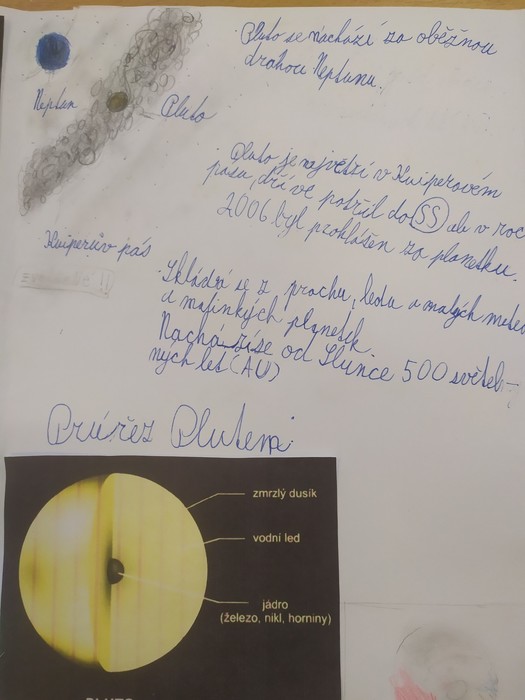 Pluto se nachází za oběžnou
drahou Neptunu.
Neptun
Pluto
Pluto je největší v Kuiperovém
pasu, dříve patřil do SS ale v roc
2006 byl prohlášen za planetku.
Kuiperův pás
Skládá se z prachu, ledu a malých meteo
a malinkých planetek.
Nachází se od Slunce 500 světel-
ných let (AU)
Průřez Plutem:
zmrzlý dusík
vodní led
jádro
(železo, nikl, horniny)